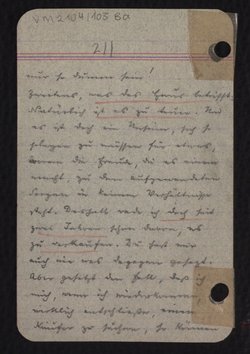 VM2104/103 Ba
211
nur so dumm sein!
Zweitens, was das Haus betrifft.
Natürlich ist es zu teuer. Und
es ist doch ein Unsinn, sich so
plagen zu müssen für etwas,
wenn die Freude, die es einem
macht, zu den aufgewendeten
Sorgen in keinem Verhältnisse
steht. Deshalb rede ich doch seit
zwei Jahren schon davon, es
zu verkaufen. Du hast mir
auch nie was dagegen gesagt.
Aber gesetzt den Fall, daß ich
mich, wenn ich wiederkomme,
wirklich entschließe, einen
Käufer zu suchen, so können